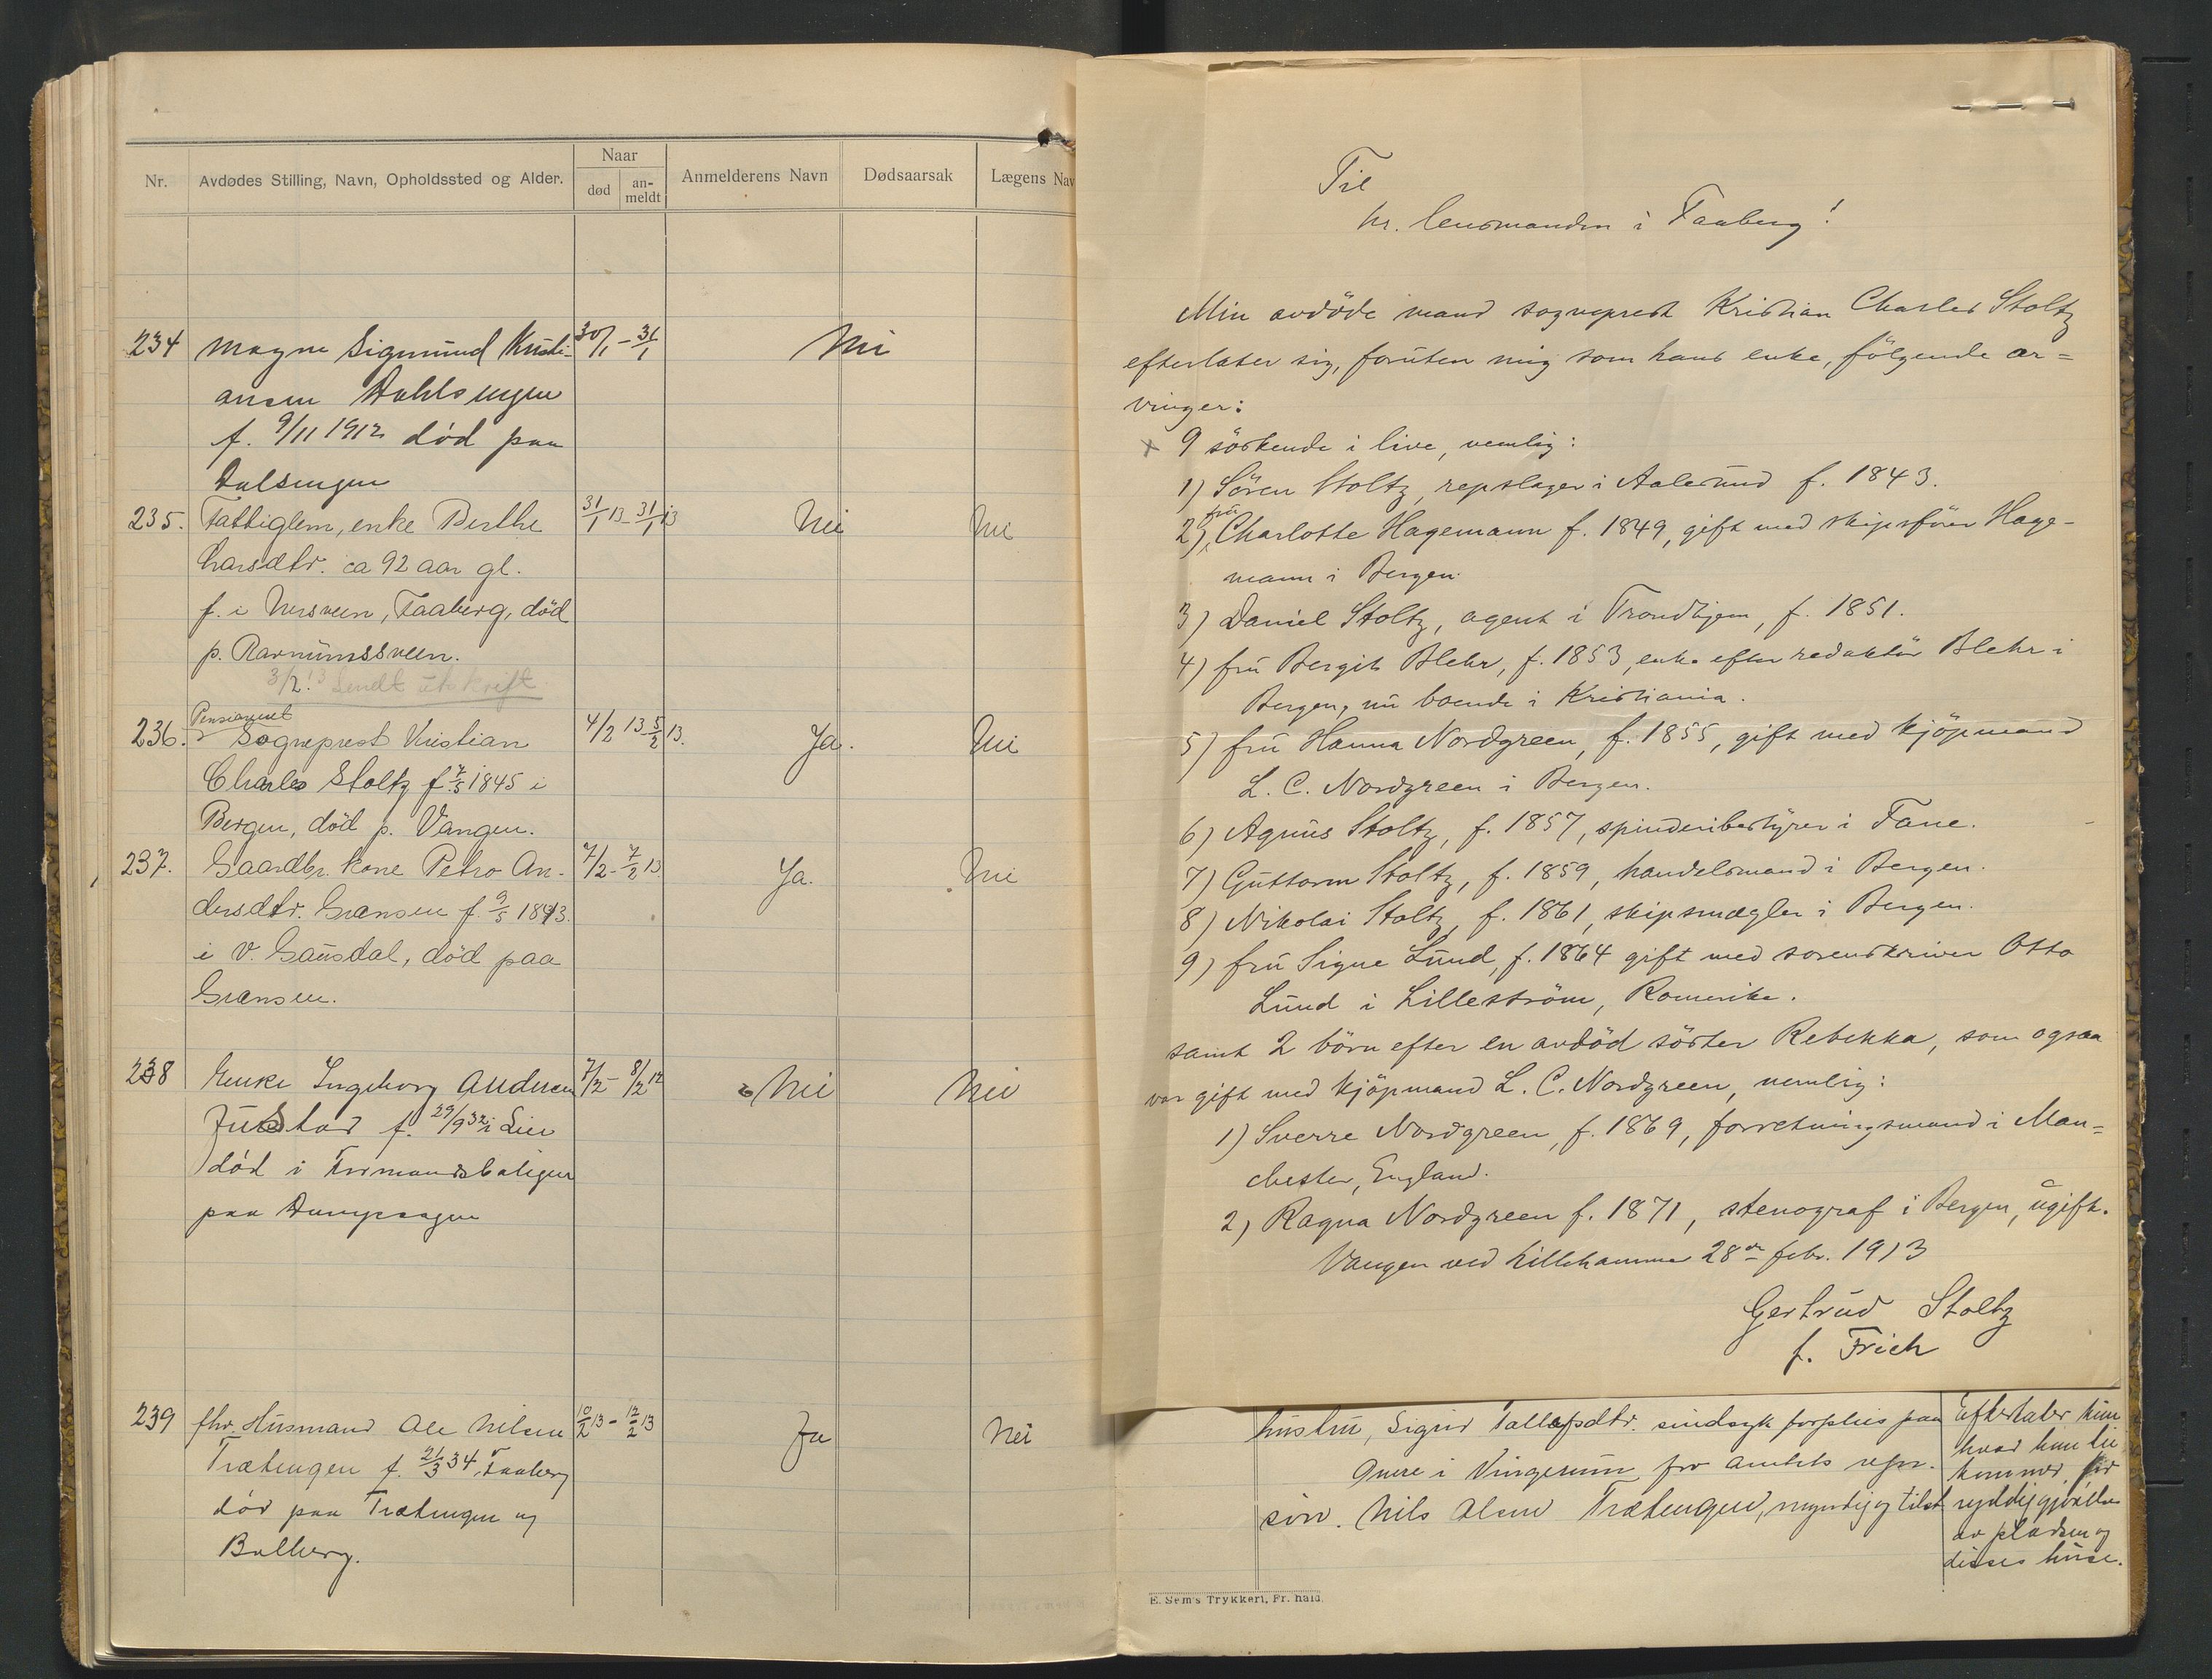 Nr.
Avdødes Stilling, Navn, Opholdssted og Alder.
Naar
død
an-
meldt
Anmelderens Navn
Dødsaarsak
Lægens Nav
234 Magne Sigmund Kristi- 30/1 - 31/1 Nei
ansen Dahlsengen
f. 9/11 1912 død paa
Dalsengen
235. Fattiglem, enke Berthe 31/1 13 - 31/1 13 Nei Nei
Larsdtr. ca 92 aar gl.
f. i Nersveen, Faaberg, död
p. Ravnumssveen.
3/2 13 Sendt utskrift
Pensioneret
236. Sogneprest Kristian 4/2 13 - 5/2 13. Ja. Nei
Charles Stoltz f. 7/5 1845 i
Bergen, död p. Vangen.
237. Gaardbr. kone Petro An- 7/2 - 7/2 13 Ja. Nei
dersdtr. Grænsen f. 9/5 1843.
i V. Gausdal, död paa
Grænsen.
238 Enke Ingeborg Andersen 7/2 - 8/2 Nei Nei
Justad f. 29/9 32 i Lier
död i Formandsboligen
paa
239 fhv. Husmand Ole Nilsen 10/2 13 - 12/2 13 Ja Nei
Trætengen f. 21/3 34, Faaberg
död paa Trætengen ug
Balberg.
Til
hr. lensmanden i Faaberg!
Min avdöde mand sogneprest Kristian Charles Stoltz
efterlater sig, foruten mig som hans enke, fölgende ar=
vinger:
x 9 söskende i live, nemlig:
1) Sören Stoltz, repslager i Aalesund f. 1843.
2) fru Charlotte Hagemann f. 1849, gift med skipsförer Hage-
mann i Bergen.
3) Daniel Stoltz, agent i Trondhjem, f. 1851.
4) fru Bergit Blehr, f. 1853, enke efter redaktör Blehr i
Bergen, nu boende i Kristiania.
5) fru Hanna Nordgreen, f. 1855, gift med kjöpmand
L. C. Nordgreen i Bergen.
6) Agnus Stoltz, f. 1857, spinderibestyrer i Fane.
7) Guttorm Stoltz, f. 1859, handelsmand i Bergen.
8) Nikolai Stoltz, f. 1861, skipsmægler i Bergen.
9) fru Signe Lund, f. 1864 gift med sorenskriver Otto
Lund i Lilleström, Romerike.
samt 2 börn efter en avdöd söster Rebekka, som ogsaa
var gift med kjöpmand L. C. Nordgreen, nemlig:
1) Sverre Nordgreen, f. 1869, forretningsmand i Man=
chester, England.
2) Ragna Nordgreen f. 1871, stenograf i Bergen, ugift.
Vangen ved Lillehammer 28de febr. 1913
Gertrud Stoltz
f. Frich
hustru, Sigrid Tollefsdtr. sindsyk forpleies paa
Onere i Vingerum for amtets regn.
sön. Nils Olsen Trætengen, myndig og tilst
Efterlater kun
hvad hun tu
kommer for
ryddiggjörelse
av pladsen og
disses huse.
E. Sem's Trykkeri, Fr.hald.